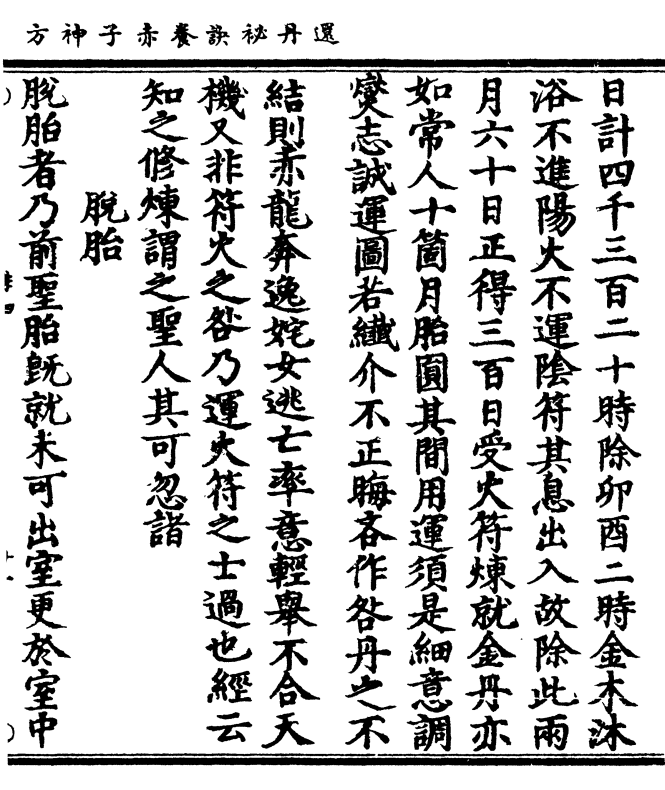 還丹祕訣養赤子神方
日計四千三百二十時除卯酉二時金木沐
浴不進陽火不運陰符其息出入故除此兩
月六十日正得三百日受火符煉就金丹亦
如常人十箇月胎圓其間用運須是細意調
爕志誠運圖若纖介不正晦吝作咎丹之不
結則赤龍奔逸姹女逃亡率意輕舉不合天
機又非符火之咎乃運火符之士過也經云
知之修煉謂之聖人其可忽諸
脫胎
脫胎者乃前聖胎旣就未可出室更於室中